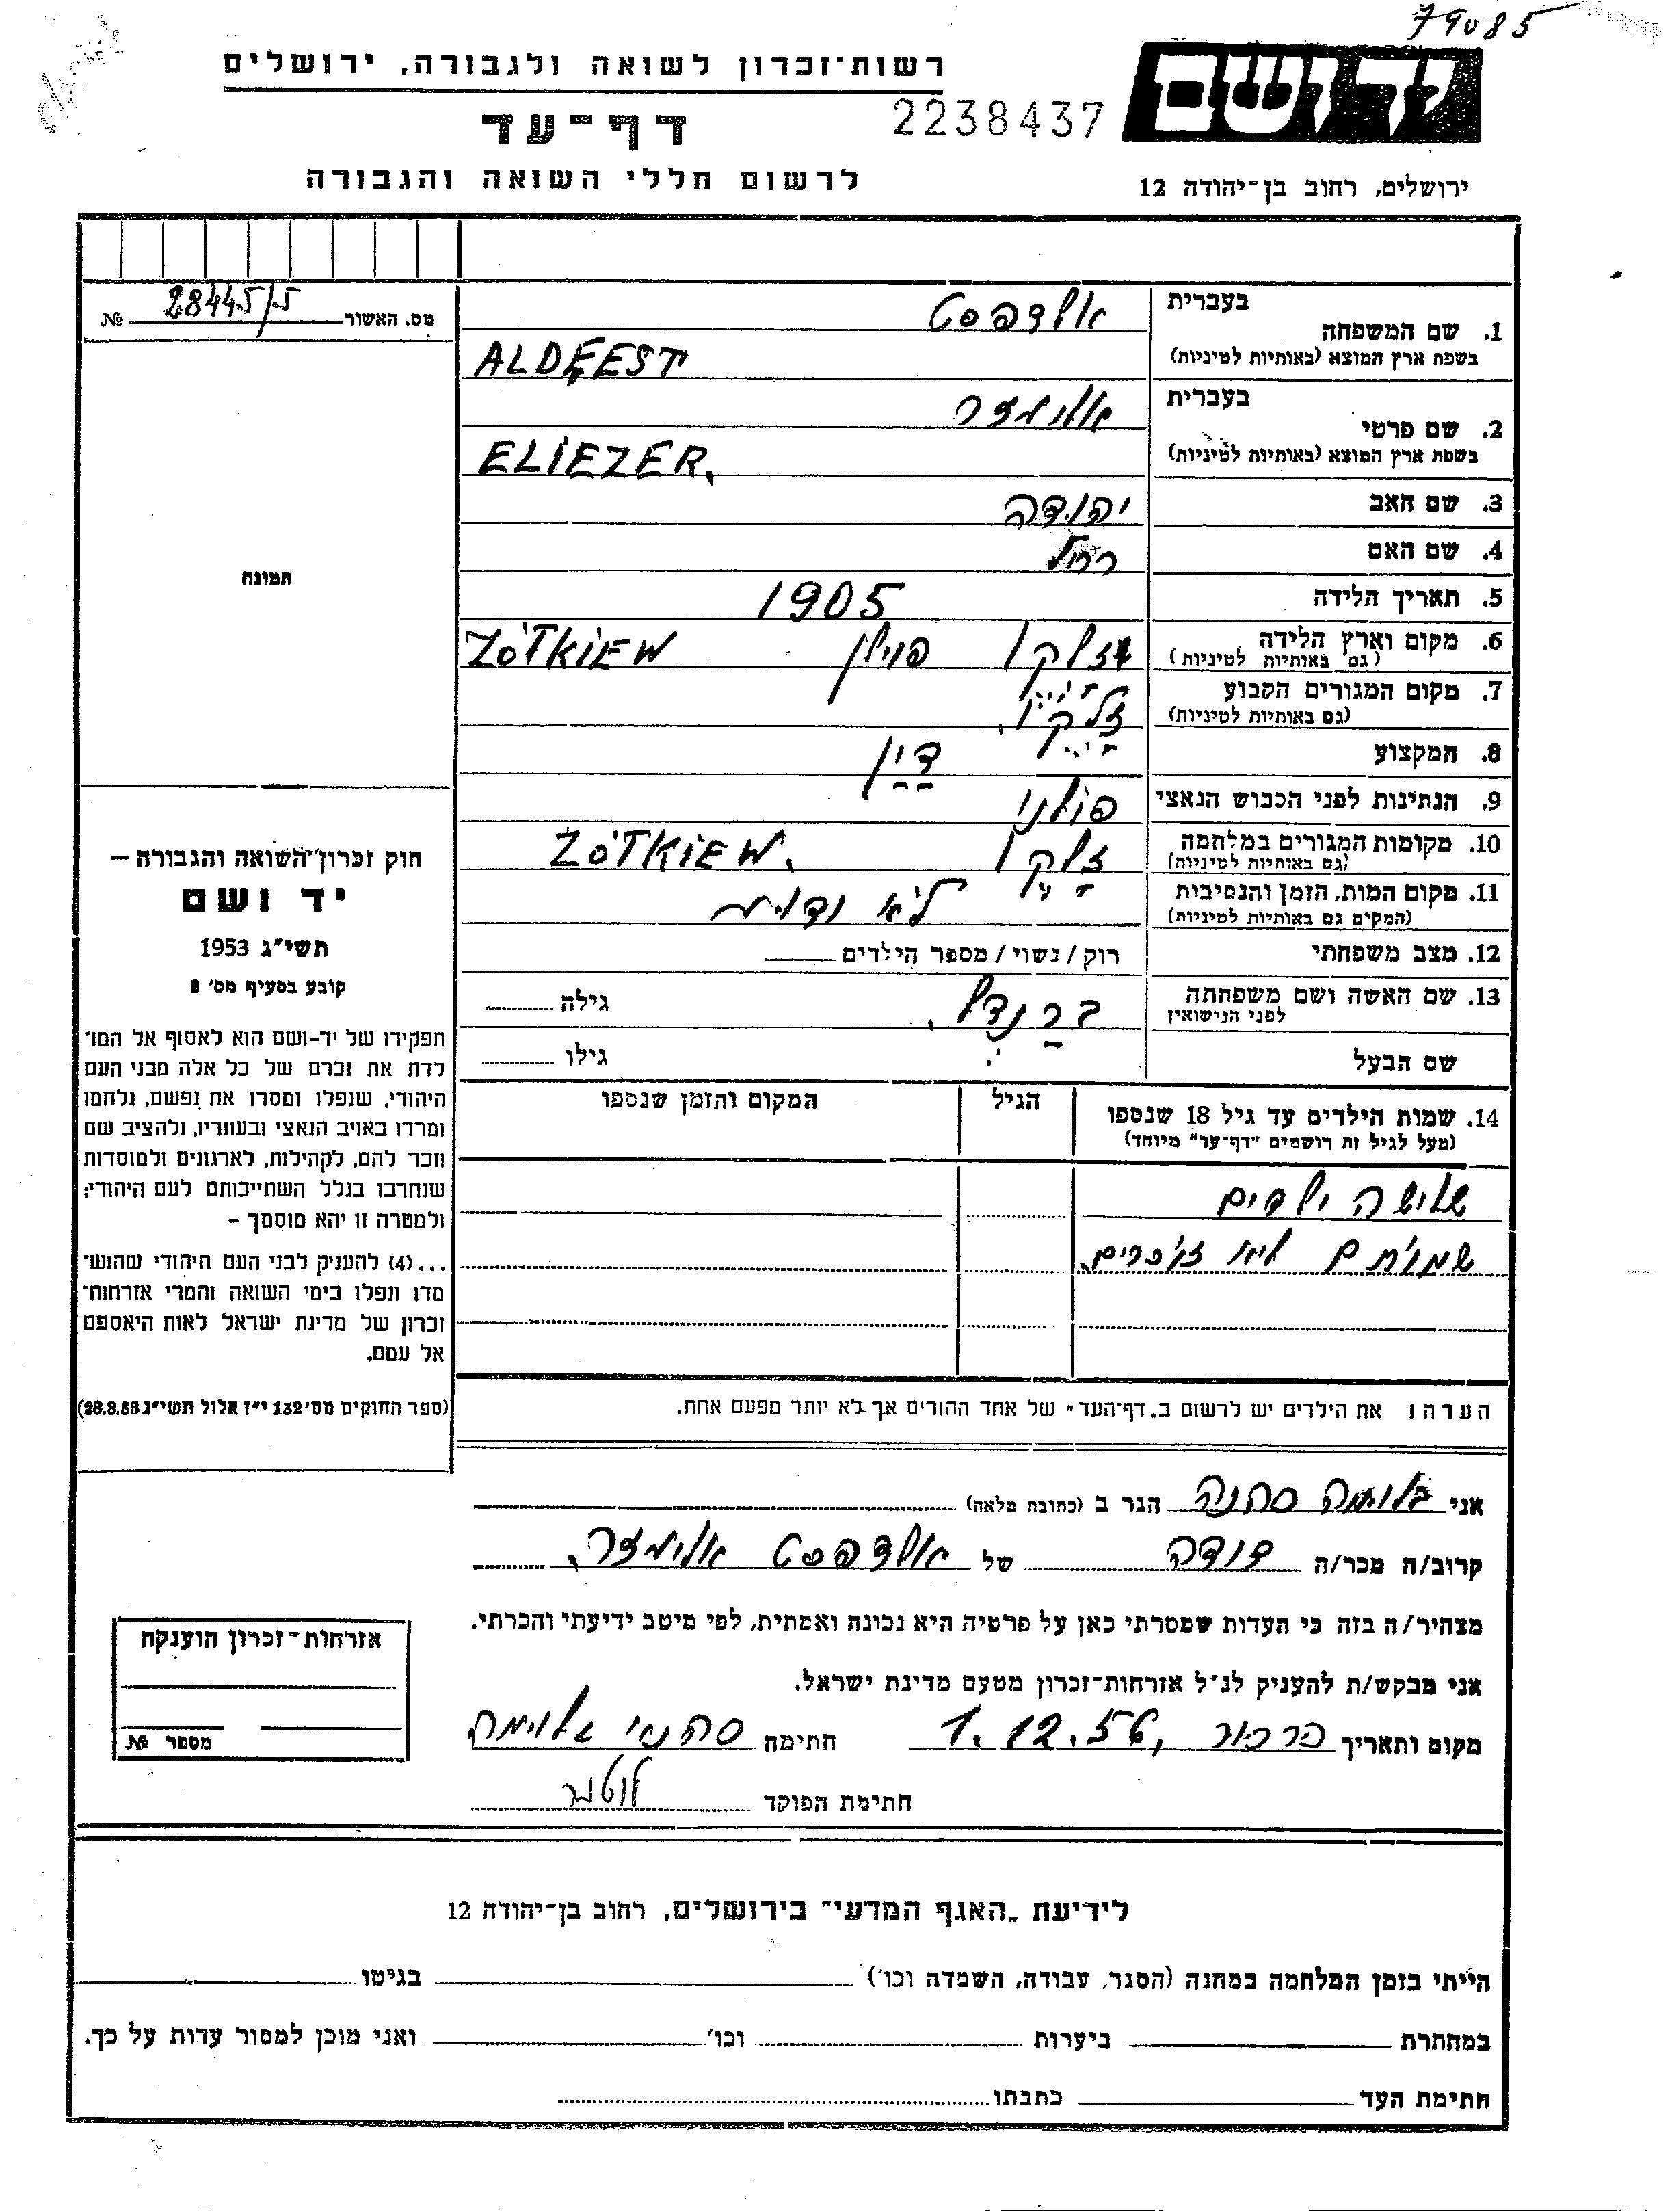 79085
רשות־זכרון לשואה ולגבורה, ירושלים
יד ושם
דף־עד
2238437
לרשום חללי השואה והגבורה
ירושלים, רחוב בן־יהודה 12
מס. האשור 28445/5 №
תמונה
1. שם המשפחה בעברית אלדפסט
בשפת ארץ המוצא (באותיות לטיניות) ALDFEST
2. שם פרטי בעברית אליעזר
בשפת ארץ המוצא (באותיות לטיניות) ELIEZER,
3. שם האב יהודה
4. שם האם רחל
5. תאריך הלידה 1905
6. מקום וארץ הלידה (גם באותיות לטיניות) זלקו פוילן ZÓTKIEW
7. מקום המגורים הקבוע (גם באותיות לטיניות) זלקוו,
8. המקצוע דיין
9. הנתינות לפני הכבוש הנאצי פולני
10. מקומות המגורים במלחמה (גם באותיות לטיניות) זלקו ZÓTKIEW,
11. מקום המות, הזמן והנסיבות (המקים גם באותיות לטיניות) לא
12. מצב משפחתי רוק / נשוי / מספר הילדים
13. שם האשה ושם משפחתה לפני הנישואין ברנדל, גילה
שם הבעל גילו
14. שמות הילדים עד גיל 18 שנספו הגיל המקום והזמן שנספו
(מעל לגיל זה רושמים "דף־עד" מיוחד)
שלושה ילדים
שמותם לא זכורים,
הערה: את הילדים יש לרשום ב„דף־העד" של אחד ההורים אך לא יותר מפעם אחת.
חוק זכרון־השואה והגבורה –
יד ושם
תשי"ג 1953
קובע בסעיף מס׳ 2
תפקידו של יד-ושם הוא לאסוף אל המו־
לדת את זכרם של כל אלה מבני העם
היהודי, שנפלו ומסרו את נפשם, נלחמו
ומרדו באויב הנאצי ובעוזריו, ולהציב שם
וזכר להם, לקהילות, לארגונים ולמוסדות
שנחרבו בגלל השתייכותם לעם היהודי;
ולמטרה זו יהא מוסמך –
...(4) להעניק לבני העם היהודי שהוש־
מדו ונפלו בימי השואה והמרי אזרחות־
זכרון של מדינת ישראל לאות היאספם
אל עמם.
(ספר החוקים מס׳ 132 י"ז אלול תשי"ג 28.8.53)
אני בלומה סהנה הגר ב (כתובת מלאה)
קרוב/ה מכר/ה דודה של אלדפסט אליעזר,
מצהיר/ה בזה כי העדות שמסרתי כאן על פרטיה היא נכונה ואמתית, לפי מיטב ידיעתי והכרתי.
אני מבקש/ת להעניק לנ"ל אזרחות־זכרון מטעם מדינת ישראל.
מקום ותאריך כרכור, 1.12.56 חתימה
חתימת הפוקד
אזרחות־זכרון הוענקה
מספר №
לידיעת „האגף המדעי" בירושלים, רחוב בן־יהודה 12
הייתי בזמן המלחמה במחנה (הסגר, עבודה, השמדה וכו׳) בגיטו
במחתרת ביערות וכו׳ ואני מוכן למסור עדות על כך.
חתימת העד כתבתו